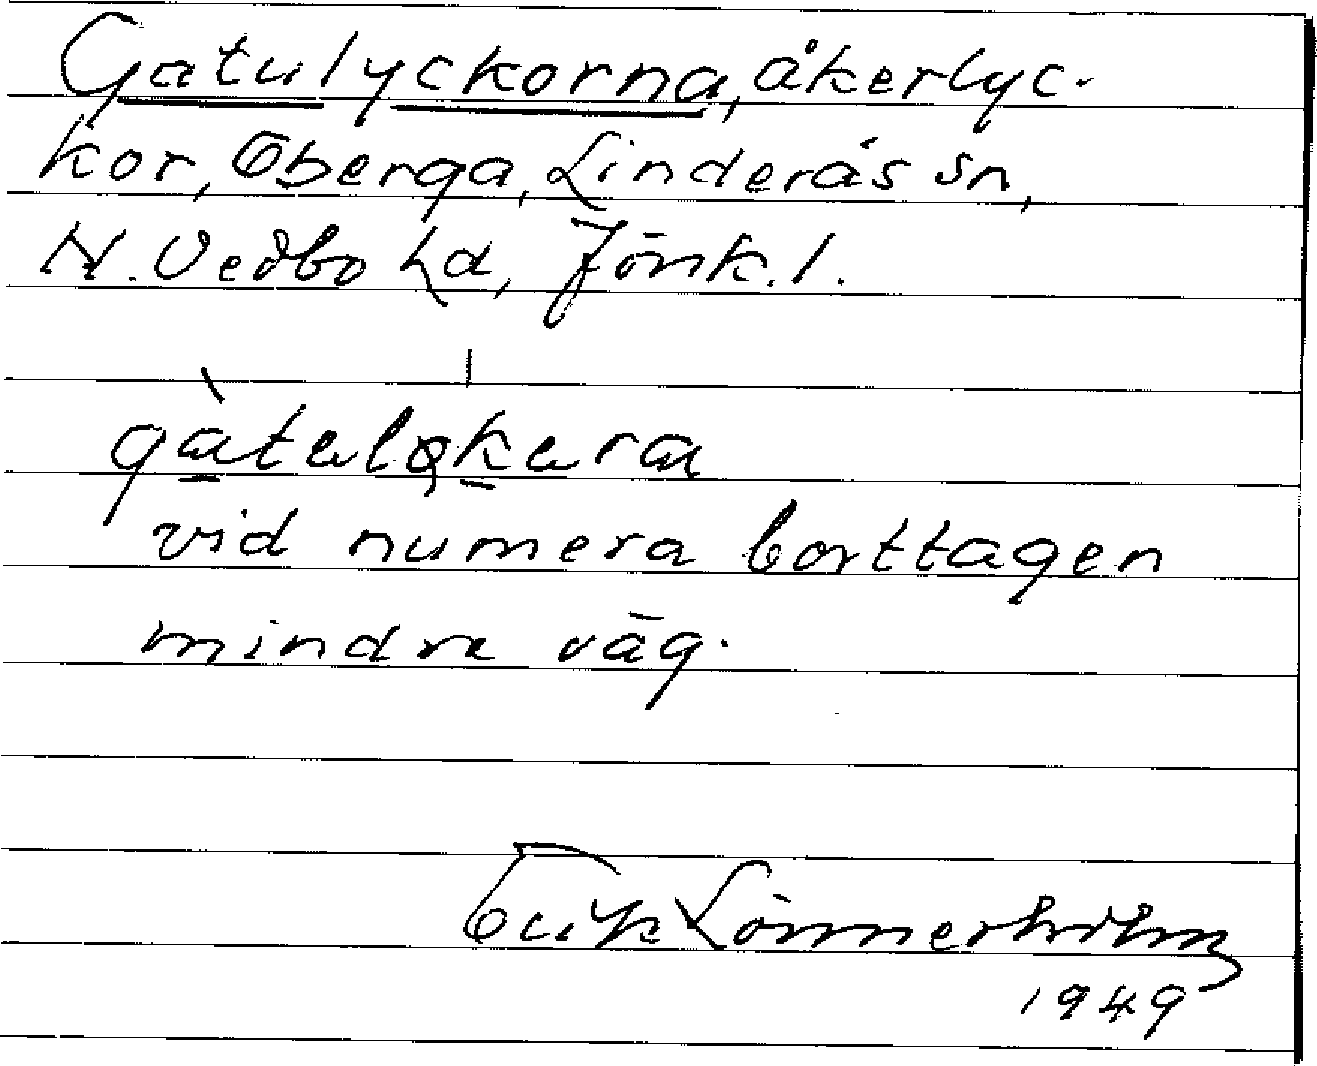 Gatulyckorna, åkerlyc-
kor, Öberga, Linderås sn,
N. Vedbo hd, Jönk. l.
vid numera borttagen
mindre väg.
Erik Lönnerholm
1949